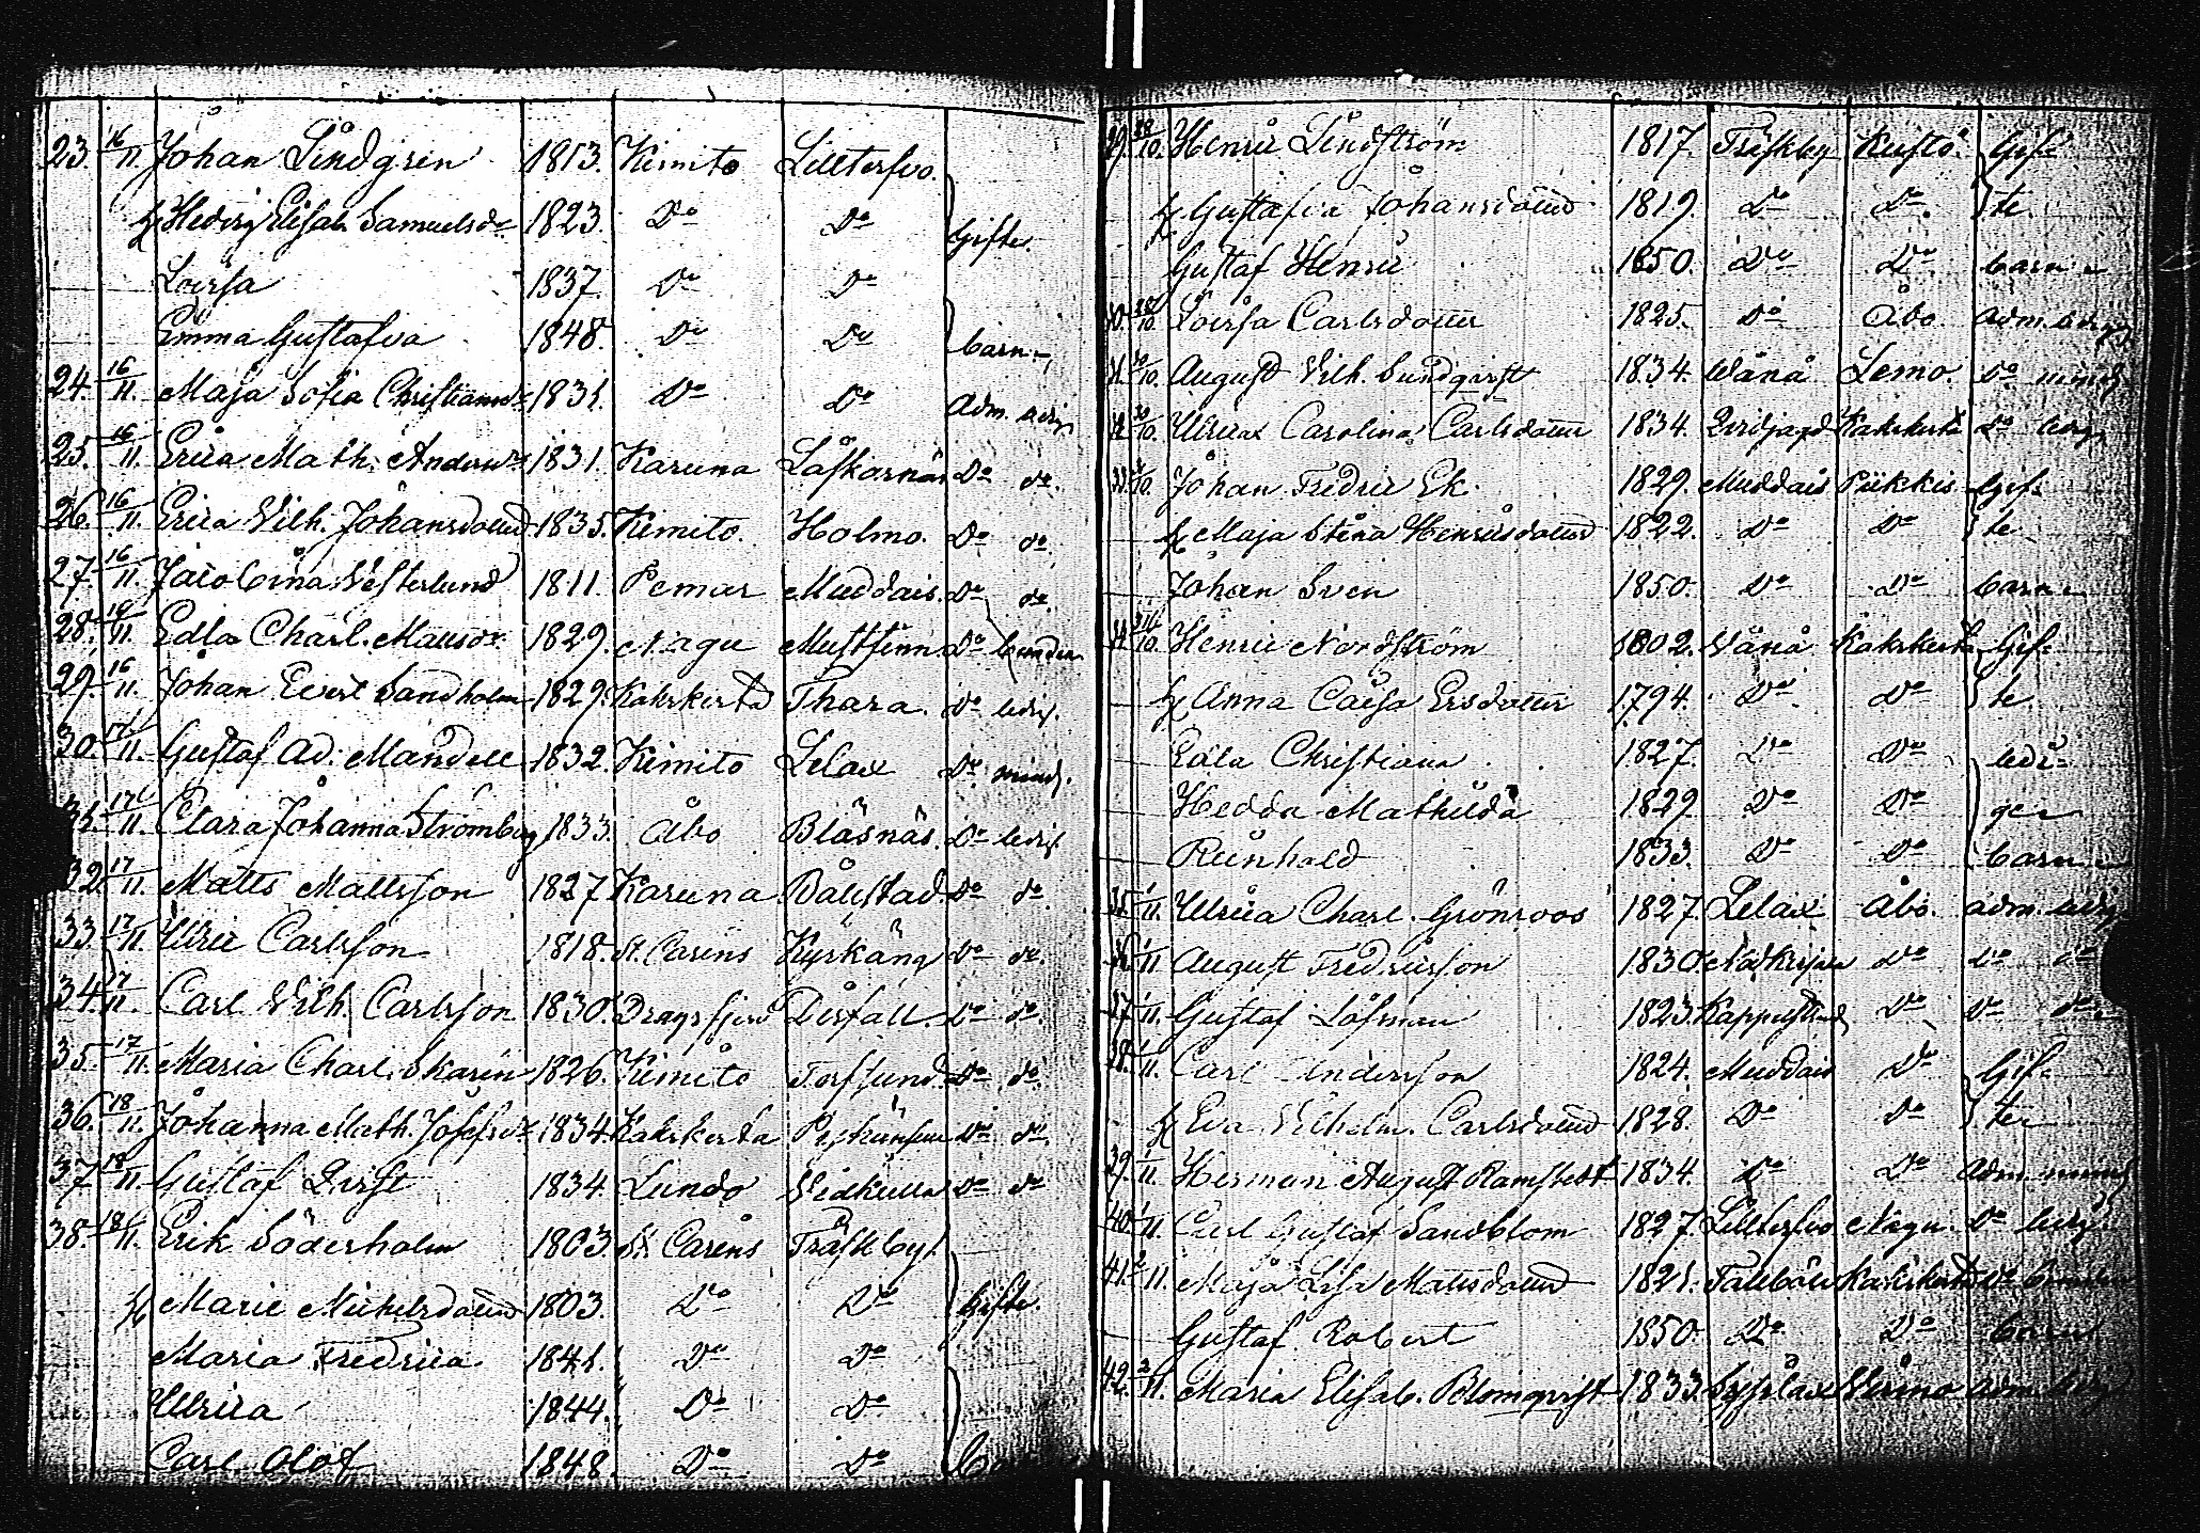 23. 16/11. Johan Lindgren 1813. Kimito Lilltersvo.
h Hedvig Elisab. Samuelsdr 1823. Do Do Gifte.
Lovisa 1837. Do Do
Emma Gustafva 1848. Do Do barn
24. 16/11. Maja Sofia Christiansdr 1831. Do Do Adm. ledig
25. 16/11. Erica Math. Andersdr 1831. Karuna Laskarnäs Do do.
26. 16/11. Erica Vilh. Johansdotter 1835. Kimito. Holmo. Do do.
27. 16/11. Jacobina Vesterlund 1811. Pemar Muddais. Do do.
28. 16/11. Edla Charl. Matsdr 1829. Nagu Mustfinn. Do
29. 16/11. Johan Evert Sandholm 1829. Kakskerta Thara. Do ledig.
30. 17/11. Gustaf Ad. Mandell 1832. Kimito Lelax Do mind.
31. 17/11. Clara Johanna Strömberg 1833. Åbo Bläsnäs. Do ledig
32. 17/11. Matts Mattsson 1827 Karuna Bållstad Do do.
33. 17/11. Ulric Carlsson 1818. St. Carins Kyrkäng Do do.
34. 17/11. Carl Vilh. Carlsson 1830. Dragsfjerd Do do.
35. 17/11. Maria Charl. Skarin 1826. Kimito Torfsund Do do.
36. 18/11. Johanna Math. Josefsdr 1834. Kakskerta Do do.
37. 18/11. Gustaf Qvist 1834. Lundo Do do
38. 18/11. Erik Söderholm 1803. St. Carins Träskby.
h Marie Michelsdotter 1803. Do Do Gifte.
Maria Fredrica 1841. Do Do
Ulrica 1844. Do Do
Carl Olof 1848. Do Do
29. 28/10. Henric Lindström 1817. Träskby Kustö. Gif-
h Gustafva Johansdotter 1819. Do Do. te
Gustaf Henric 1850. Do Do. barn
30. 28/10. Lovisa Carlsdotter 1825. Do Åbo. Adm. ledig
31. 30/10. August Vilh. Sundqvist 1834. Wånå Lemo. Do mind.
32. 30/10. Ulrica Carolina Carlsdotter 1834. Kakskerta Do ledig
33. /10. Johan Fredric Ek. 1829. Muddais Piikkis Gif-
h Maja Stina Henricsdotter 1822. Do Do te
Johan Sven 1850. Do Do barn
34. /10. Henric Nordström 1802. Vånå Kakskerta Gif-
h Anna Caisa Ersdotter 1794. Do Do te.
Edla Christiana 1827. Do Do ledi-
Hedda Mathilda 1829. Do Do ge
Reinhold 1833. Do Do barn
35. 1/11. Ulrica Charl. Grönroos 1827. Lelax Åbo. adm. ledig
36. 1/11 August Fredricsson 1830. Do Do do
37. 1/11. Gustaf Löfman 1823. Do Do do.
38. 1/11. Carl Andersson 1824. Muddais Do Gif-
h Eva Vilhelm. Carlsdotter 1828. Do Do te
39. 1/11. Herman August Ramstedt 1834. Do Do Adm. mind
40. 1/11. Carl Gustaf Sandblom 1827. Lilltersvo Nagu. Do ledig
41. 2/11. Maja Lisa Mattsdotter 1821. Kakskerta Do
Gustaf Robert 1850. Do Do barn
42. 2/11. Maria Elisab. Blomqvist 1833. Virmo adm. ledig